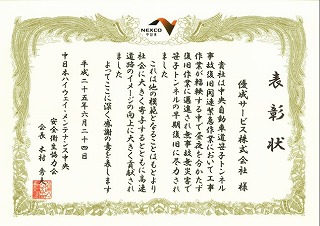 NEXCO
中日本
表彰状
優成サービス株式会社 様
貴社は中央自動車道笹子トンネル
事故復旧関連緊急作業において工事
作業が輻輳する中で昼夜を分かたず
復旧作業に邁進され無事故無災害で
笹子トンネルの早期復旧に尽力され
ました
これは他の模範となることはもとより
社会に大きく寄与するとともに高速
道路のイメージの向上に大きく貢献され
ました
よってここに深く感謝の意を表します
平成二十五年六月二十四日
中日本ハイウェイ・メンテナンス中央
安全衛生協力会
会長 木村 秀夫